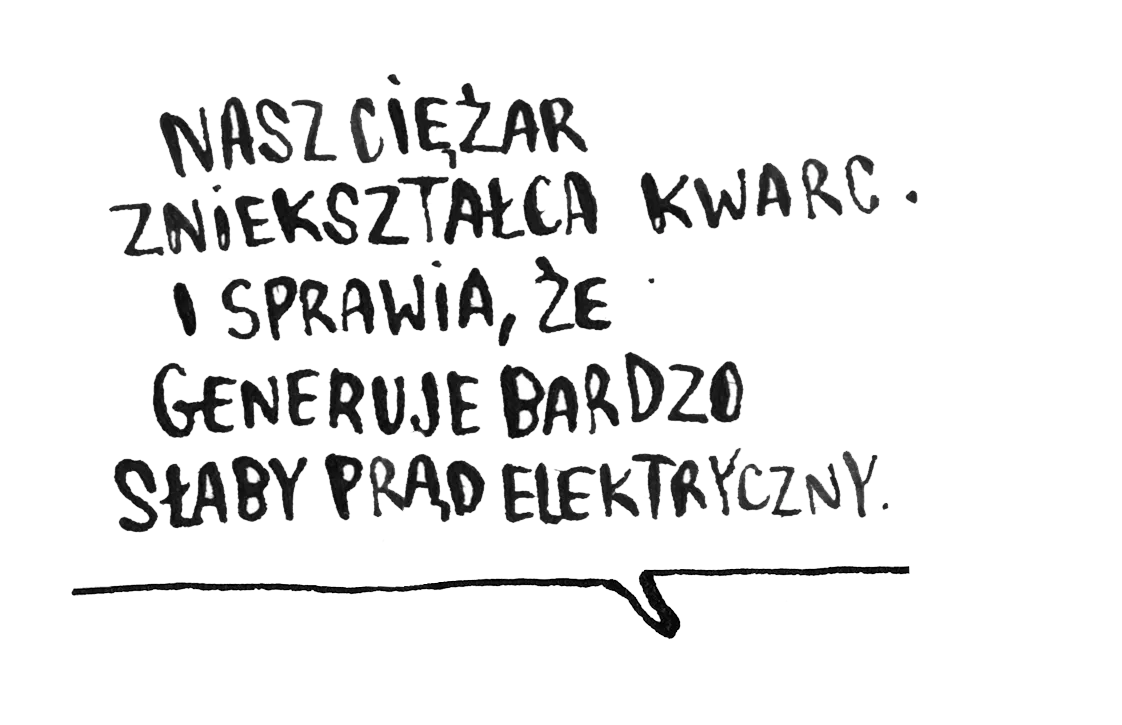 NASZ CIĘŻAR
ZNIEKSZTAŁCA KWARC.
I SPRAWIA, ŻE
GENERUJE BARDZO
SŁABY PRĄD ELEKTRYCZNY.